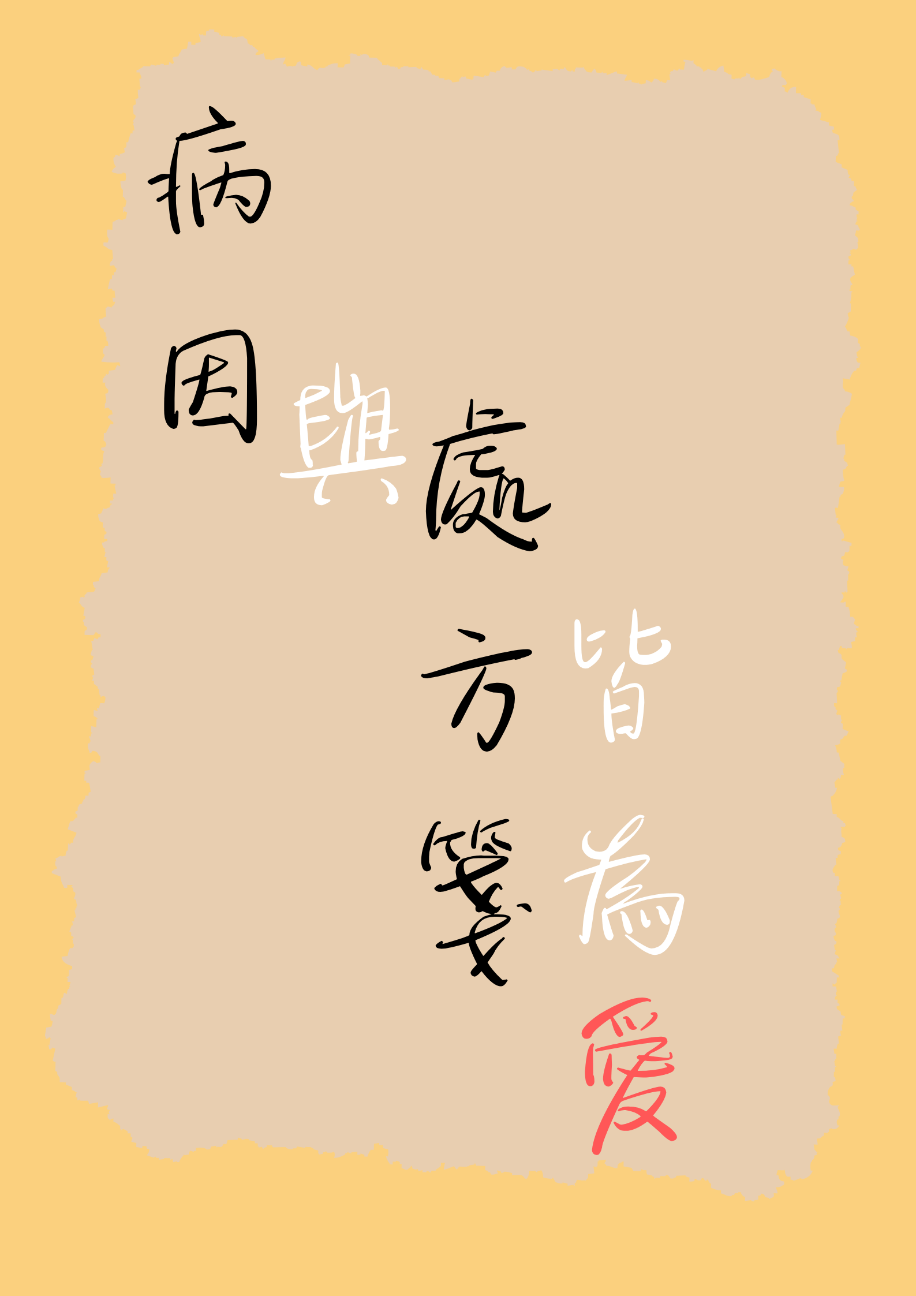 病因
與
處方箋
皆為
愛